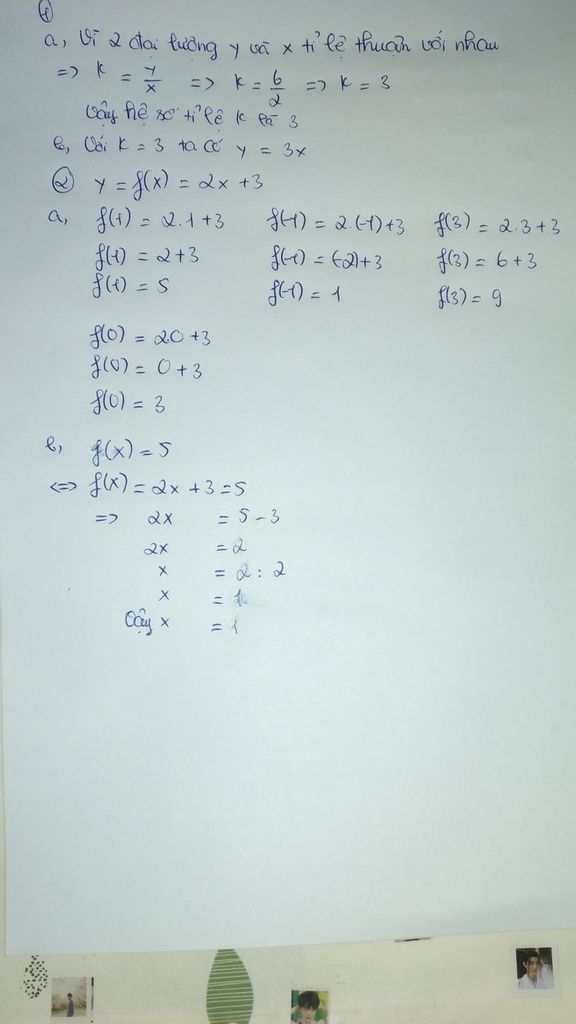 ①
a, Vì 2 đại lượng y và x tỉ lệ thuận với nhau
=> k = y/x => k = 6/2 => k = 3
Vậy hệ số tỉ lệ k là 3
b, Với k = 3 ta có y = 3x
② y = f(x) = 2x + 3
a, f(1) = 2.1+3 f(-1) = 2.(-1)+3 f(3) = 2.3+3
f(1) = 2+3 f(-1) = (-2)+3 f(3) = 6+3
f(1) = 5 f(-1) = 1 f(3) = 9
f(0) = 20+3
f(0) = 0+3
f(0) = 3
b, f(x) = 5
<=> f(x) = 2x + 3 = 5
=> 2x = 5 - 3
2x = 2
x = 2 : 2
x = 1
Vậy x = 1